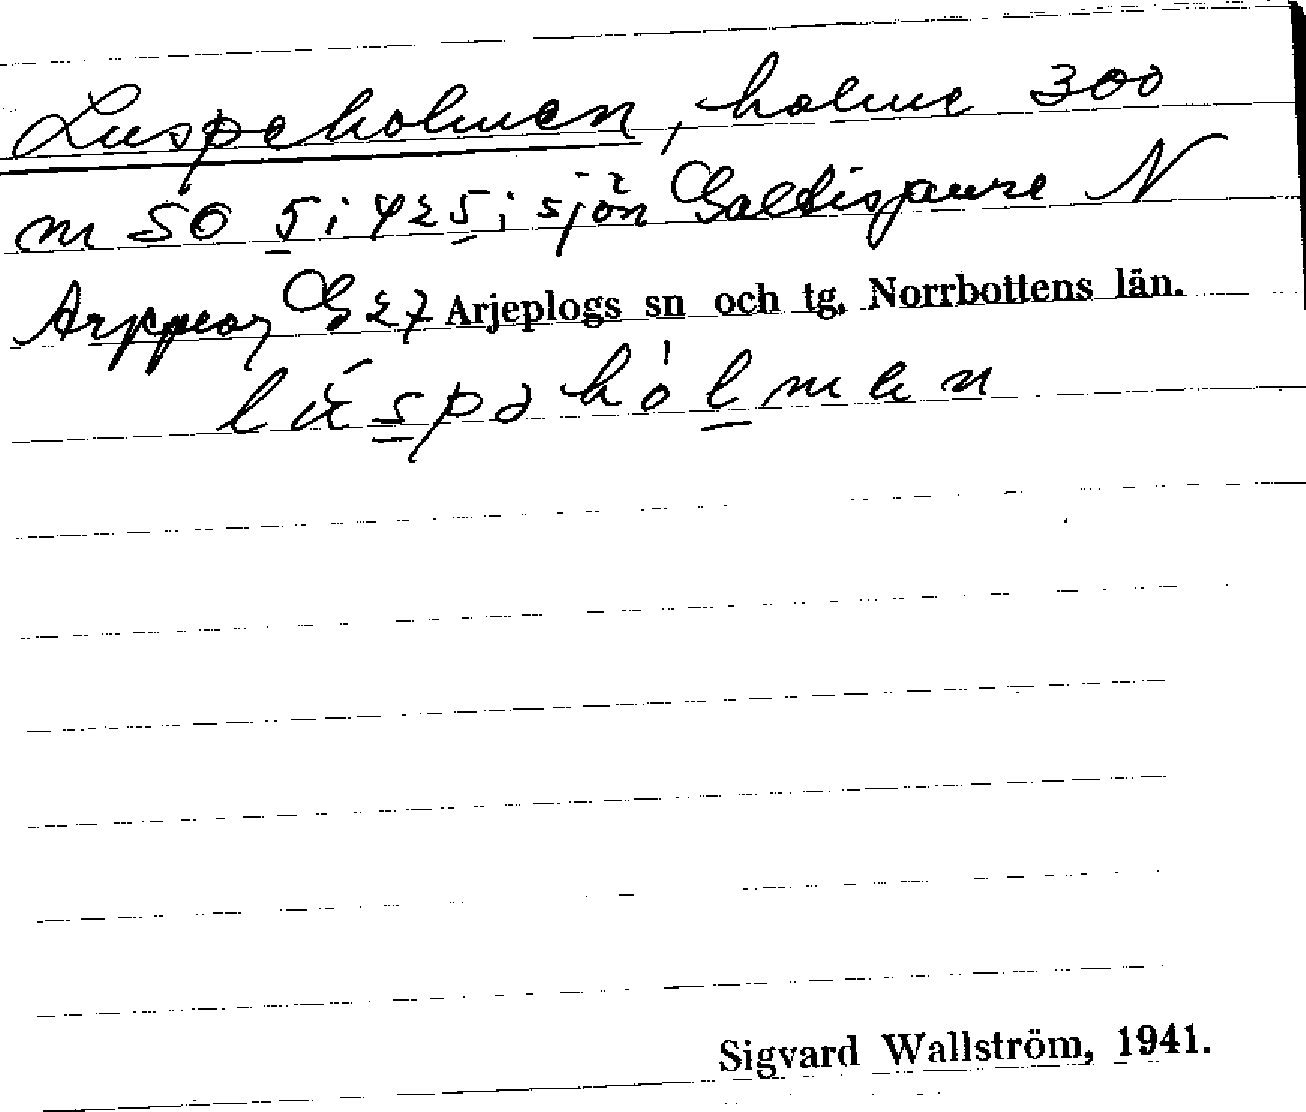 Luspeholmen, holme 300
m SO 5 i 425 i sjön Galtisjaure N
Arjeplog G 27 Arjeplogs sn och tg, Norrbottens län.
Sigvard Wallström, 1941.